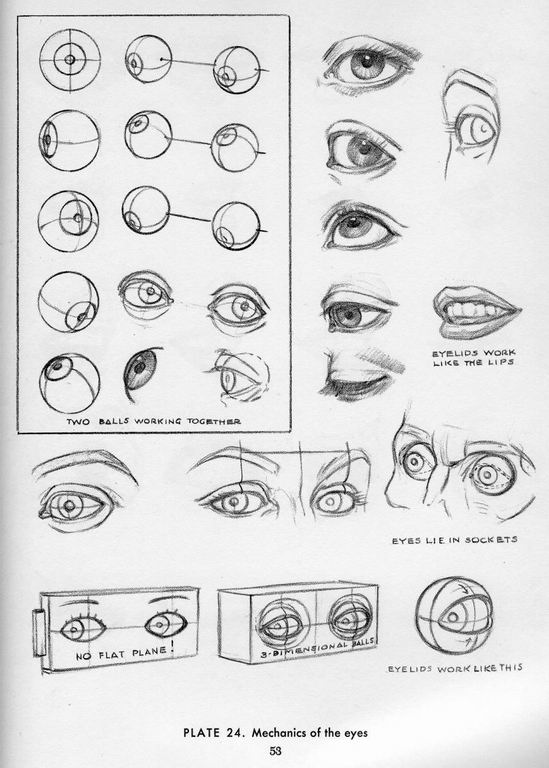 TWO BALLS WORKING TOGETHER
EYELIDS WORK
LIKE THE LIPS
EYES LIE IN SOCKETS
NO FLAT PLANE!
3-DIMENSIONAL BALLS
EYELIDS WORK LIKE THIS
PLATE 24. Mechanics of the eyes
53